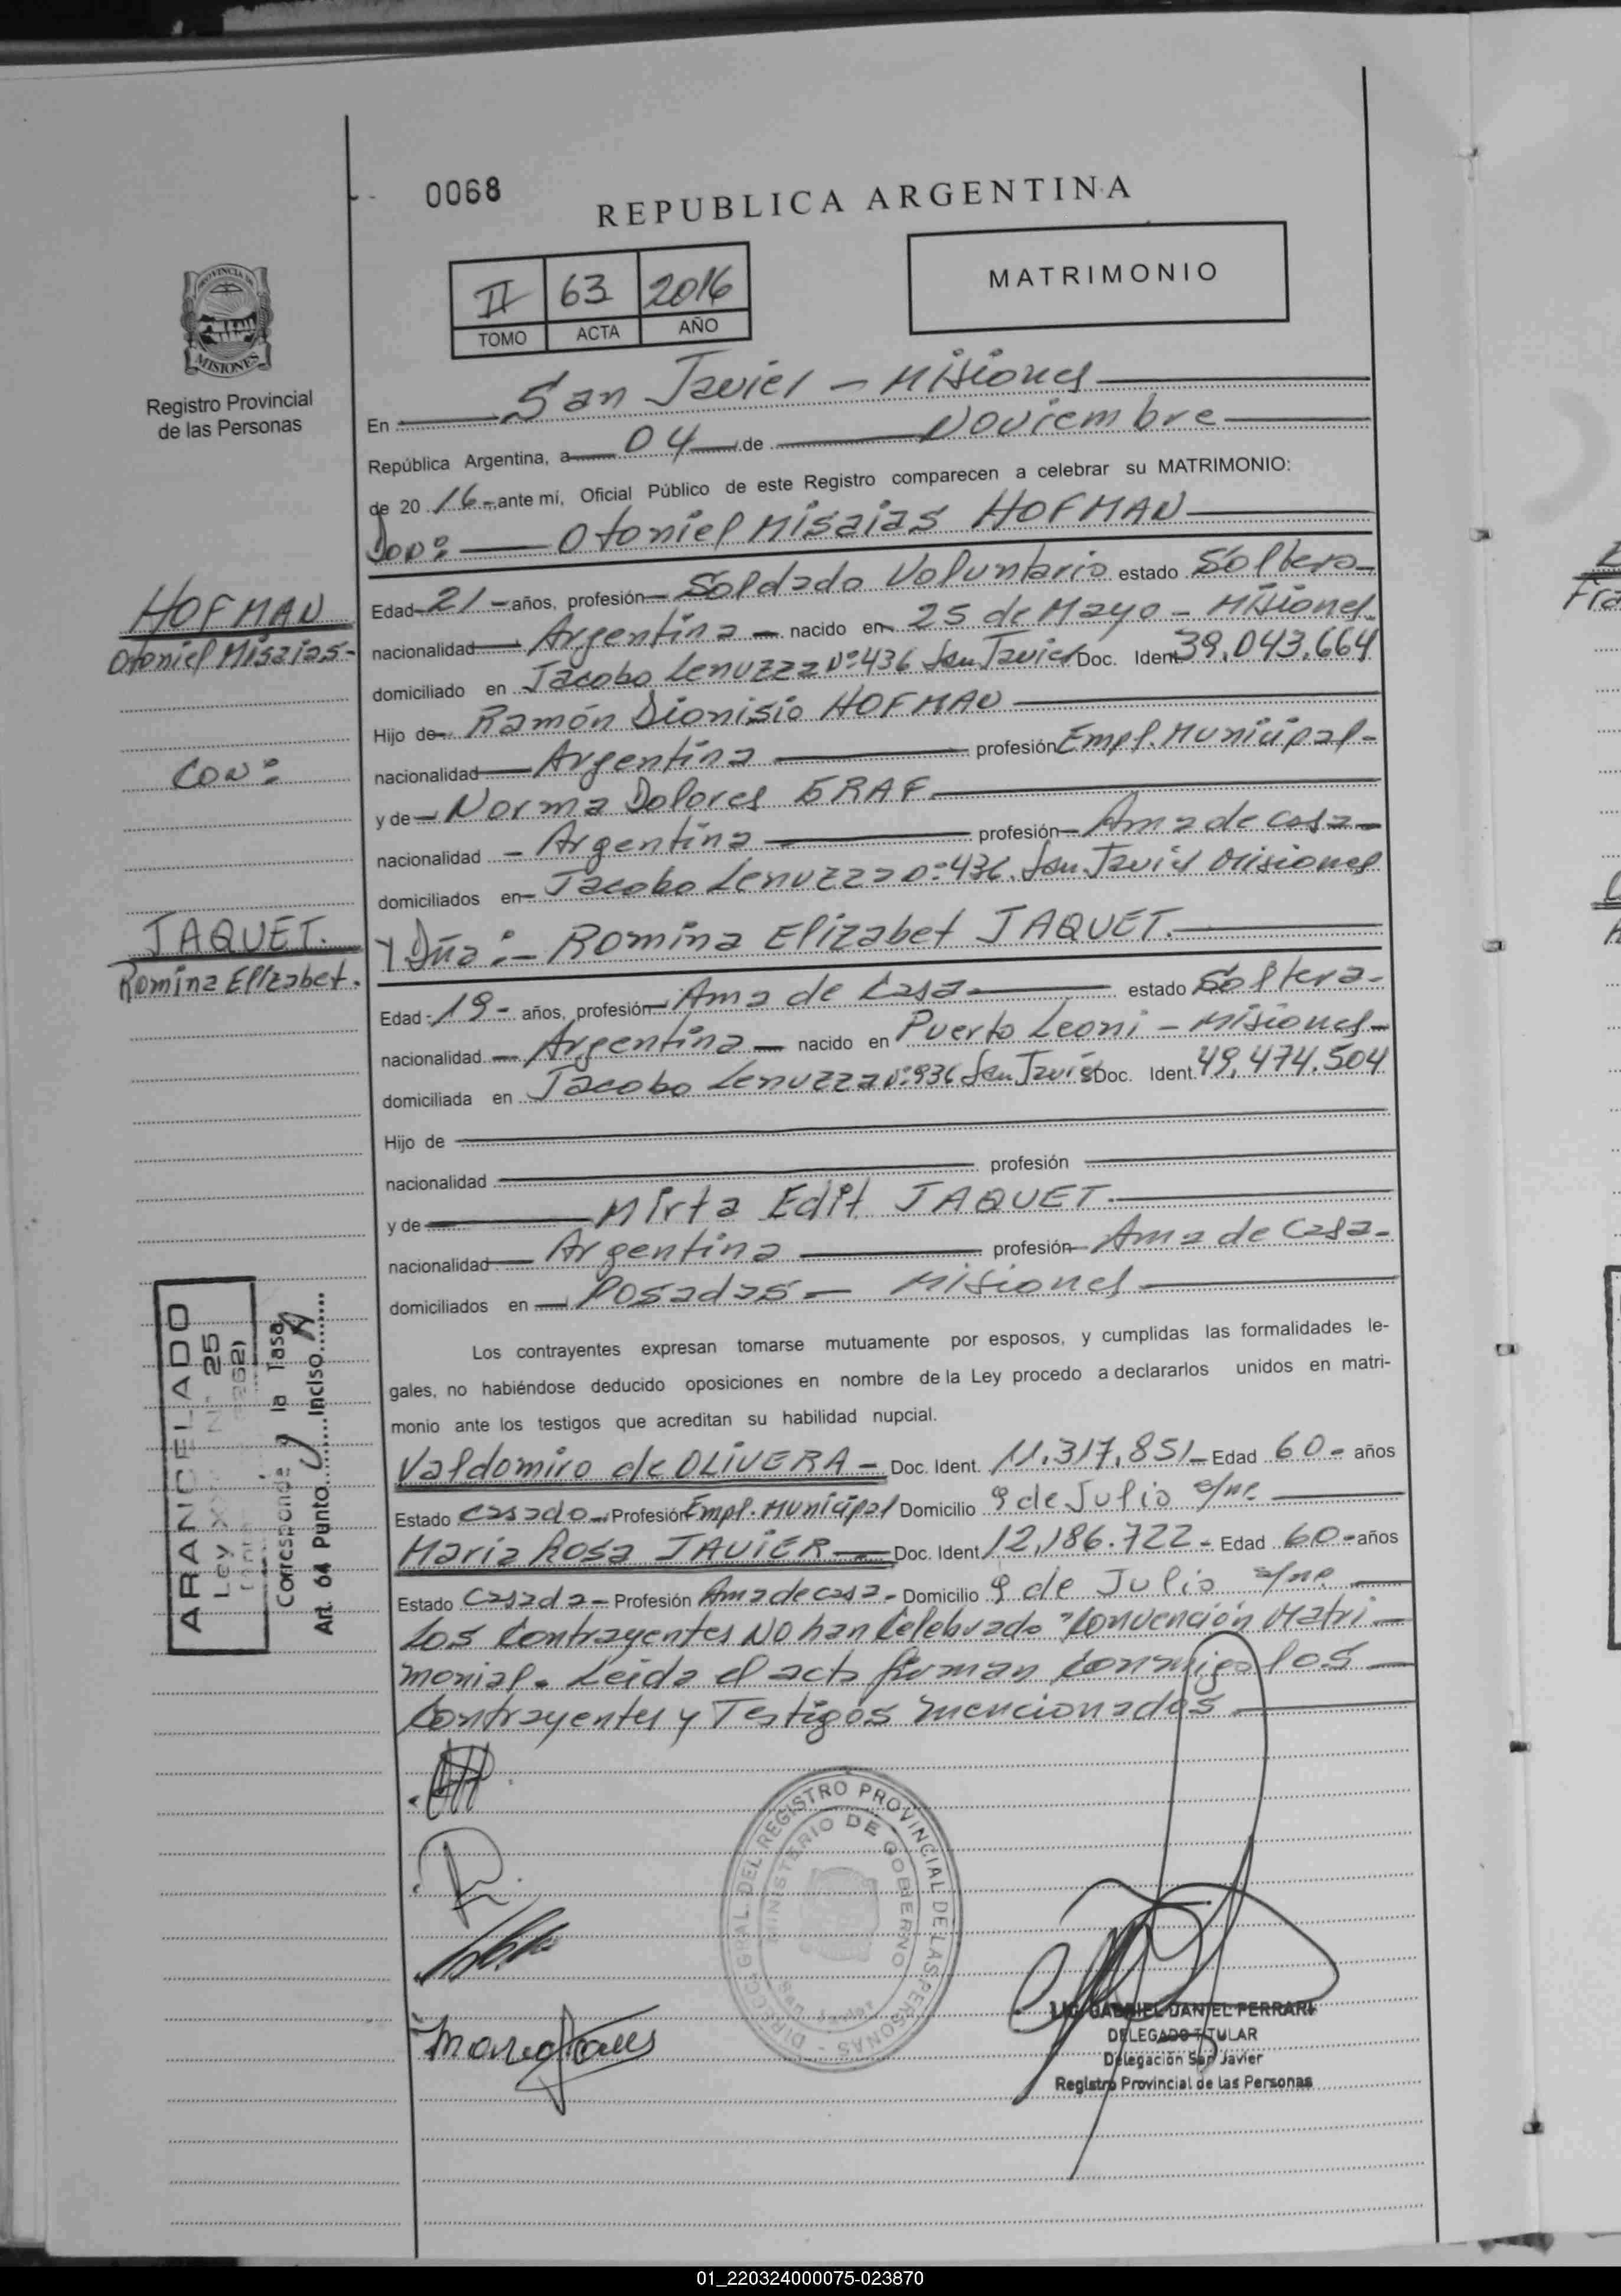 0068
REPUBLICA ARGENTINA
II 63 2016
TOMO ACTA AÑO
MATRIMONIO
PROVINCIA DE
MISIONES
Registro Provincial
de las Personas
En San Javier - Misiones
República Argentina, a 04 de Noviembre
de 2016 - ante mí, Oficial Público de este Registro comparecen a celebrar su MATRIMONIO:
Don: Otoniel Misaias HOFMAN
HOFMAN
Otoniel Misaias-
Con:
JAQUET.
Romina Elizabet.
Edad 21 - años, profesión Soldado Voluntario estado Soltero
nacionalidad Argentina nacido en 25 de Mayo - Misiones
domiciliado en Jacobo Lenuzza Nº 436 San Javier Doc. Ident. 39.043.664
Hijo de Ramón Dionisio HOFMAN
nacionalidad Argentina profesión Empl. Municipal-
y de Norma Dolores ERAF
nacionalidad - Argentina profesión Ama de casa
domiciliados en Jacobo Lenuzza Nº 436. San Javier Misiones
Y Dña: - Romina Elizabet JAQUET.
Edad 19 - años, profesión Ama de Casa estado Soltera-
nacionalidad Argentina nacido en Puerto Leoni - Misiones
domiciliada en Jacobo Lenuzza Nº 936 San Javier Doc. Ident. 49.474.504
Hijo de
nacionalidad profesión
y de Mirta Edit JAQUET
nacionalidad Argentina profesión Ama de Casa-
domiciliados en Posadas - Misiones
Los contrayentes expresan tomarse mutuamente por esposos, y cumplidas las formalidades le-
gales, no habiéndose deducido oposiciones en nombre de la Ley procedo a declararlos unidos en matri-
monio ante los testigos que acreditan su habilidad nupcial.
Valdomiro de OLIVERA - Doc. Ident. 11.317.851 - Edad 60 - años
Estado Casado - Profesión Empl. Municipal Domicilio 9 de Julio s/nº.
Maria Rosa JAVIER Doc. Ident 12.186.722 - Edad 60 - años
Estado Casada - Profesión Ama de casa - Domicilio 9 de Julio s/nº.
Los Contrayentes NO han Celebrado Convención Matri-
monial. Leida el acta firman conmigo los
Contrayentes y Testigos mencionados
ARANCELADO
Ley N° 25
Corresponde la Tasa
Art. 64 Punto Inciso A
DIRECC. GRAL. DEL REGISTRO PROVINCIAL DE LAS PERSONAS -
MINISTERIO DE GOBIERNO
San Javier
LIC. GABRIEL DANIEL FERRARI
DELEGADO TITULAR
Delegación San Javier
Registro Provincial de las Personas
01_220324000075-023870